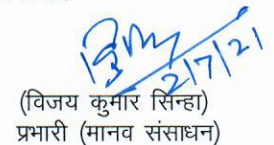 2/7/21
(विजय कुमार सिन्हा)
प्रभारी (मानव संसाधन)